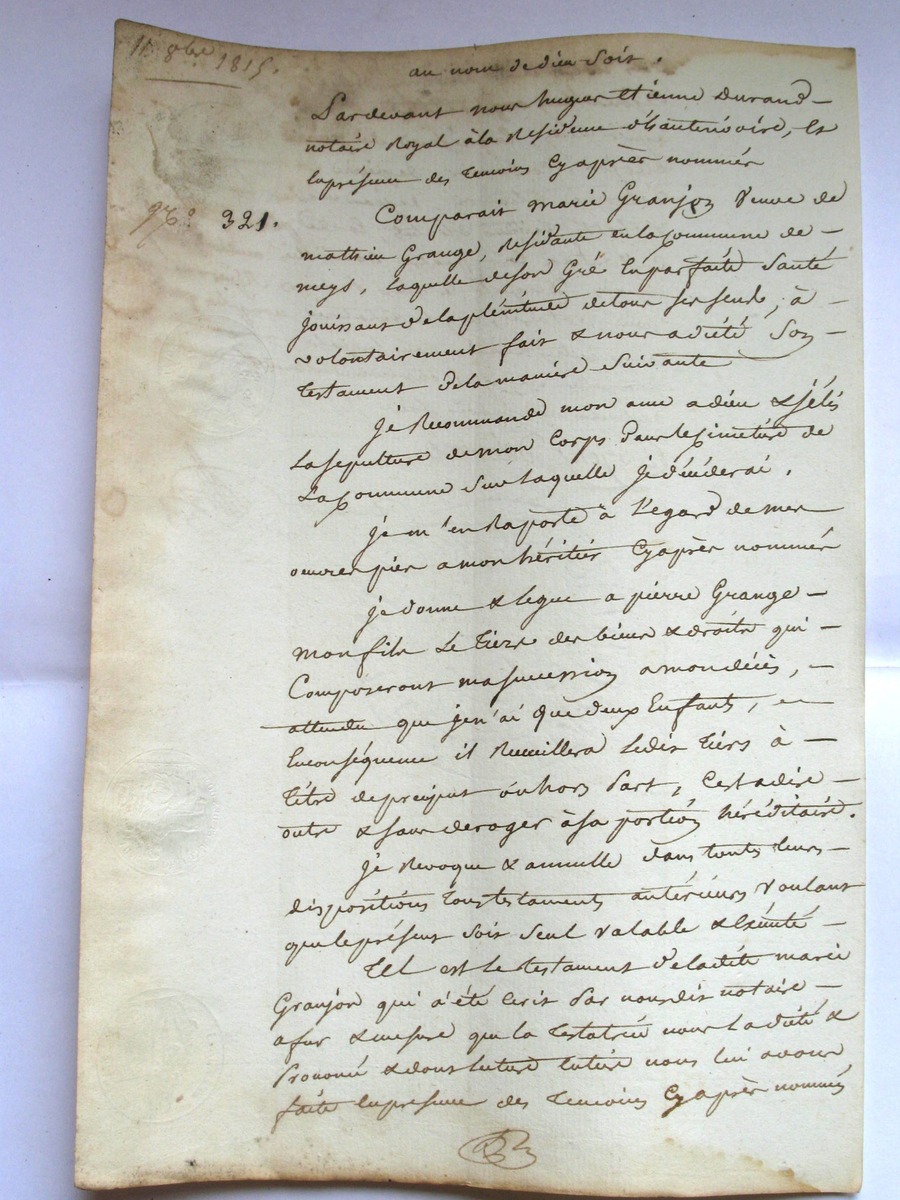 11 8bre 1815.
au nom de dieu soit.
Pardevant nous hugues Etienne Durand
notaire Royal à la Residence d'hauterivoire, Et
En présence des temoins Cy après nommés
No 321.
Comparait marie Granjon Veuve de
mathieu Grange, Residante en la Commune de
meys, laquelle de son Gré En parfaite Santé
jouissant de la plénitude de tous ses sens, à
volontairement fait & nous a dicté Son
Testament de la manière Suivante
je Recommande mon ame a dieu &
La sepulture de mon Corps Dans le Cimetière de
La Commune Sur laquelle je décéderai.
je m'en Raporte à l'egard de mes
oeuvres pies a mon héritier Cy après nommé
je donne & legue a pierre Grange
mon fils Le Tiers des biens & droits qui
Composeront ma succession a mon décès,
attendu que je n'ai que deux Enfants, en
Conséquence il Recueillera Ledit Tiers à
Titre de preciput ou hors Part, C'est a dire
outre & sans deroger à sa portion héréditaire.
je Revoque & annulle dans toutes leurs
dispositions Tous testaments antérieurs voulant
que le présent soit seul valable & Exécuté
Tel est le testament de ladite marie
Granjon qui a été Ecrit Par nous dit notaire
a fur & mesure que la Testatrice nous l'a dicté &
Prononcé & dont lecture Entière nous lui avons
faite En présence des Temoins Cy après nommés